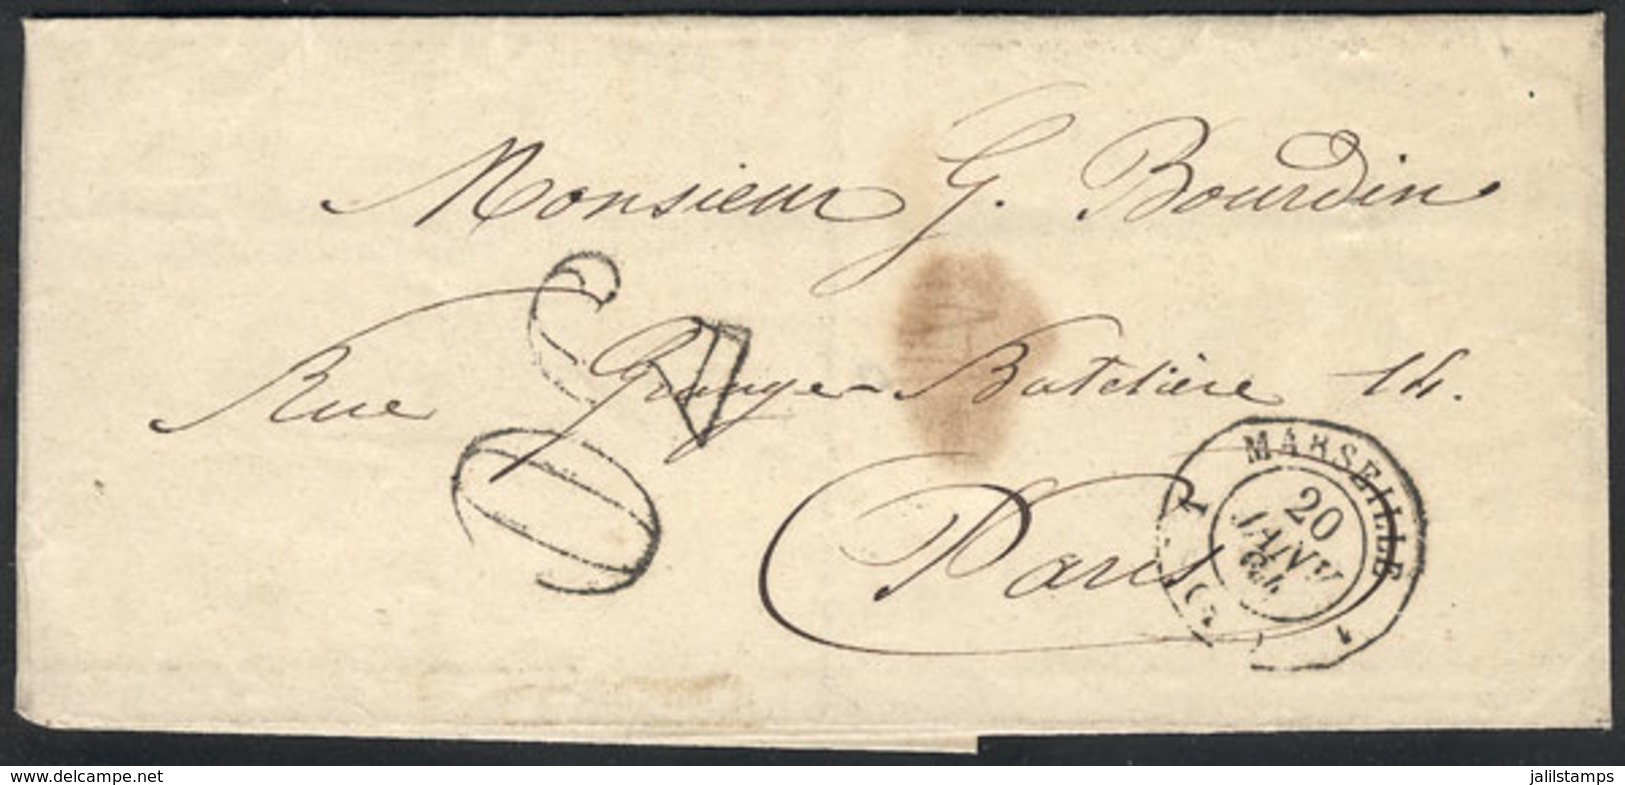 Monsieur G. Bourdin
Rue Grange-Batelière 14.
Paris
MARSEILLE
20
JANV
64
1
delcampe.net
jalilstamps